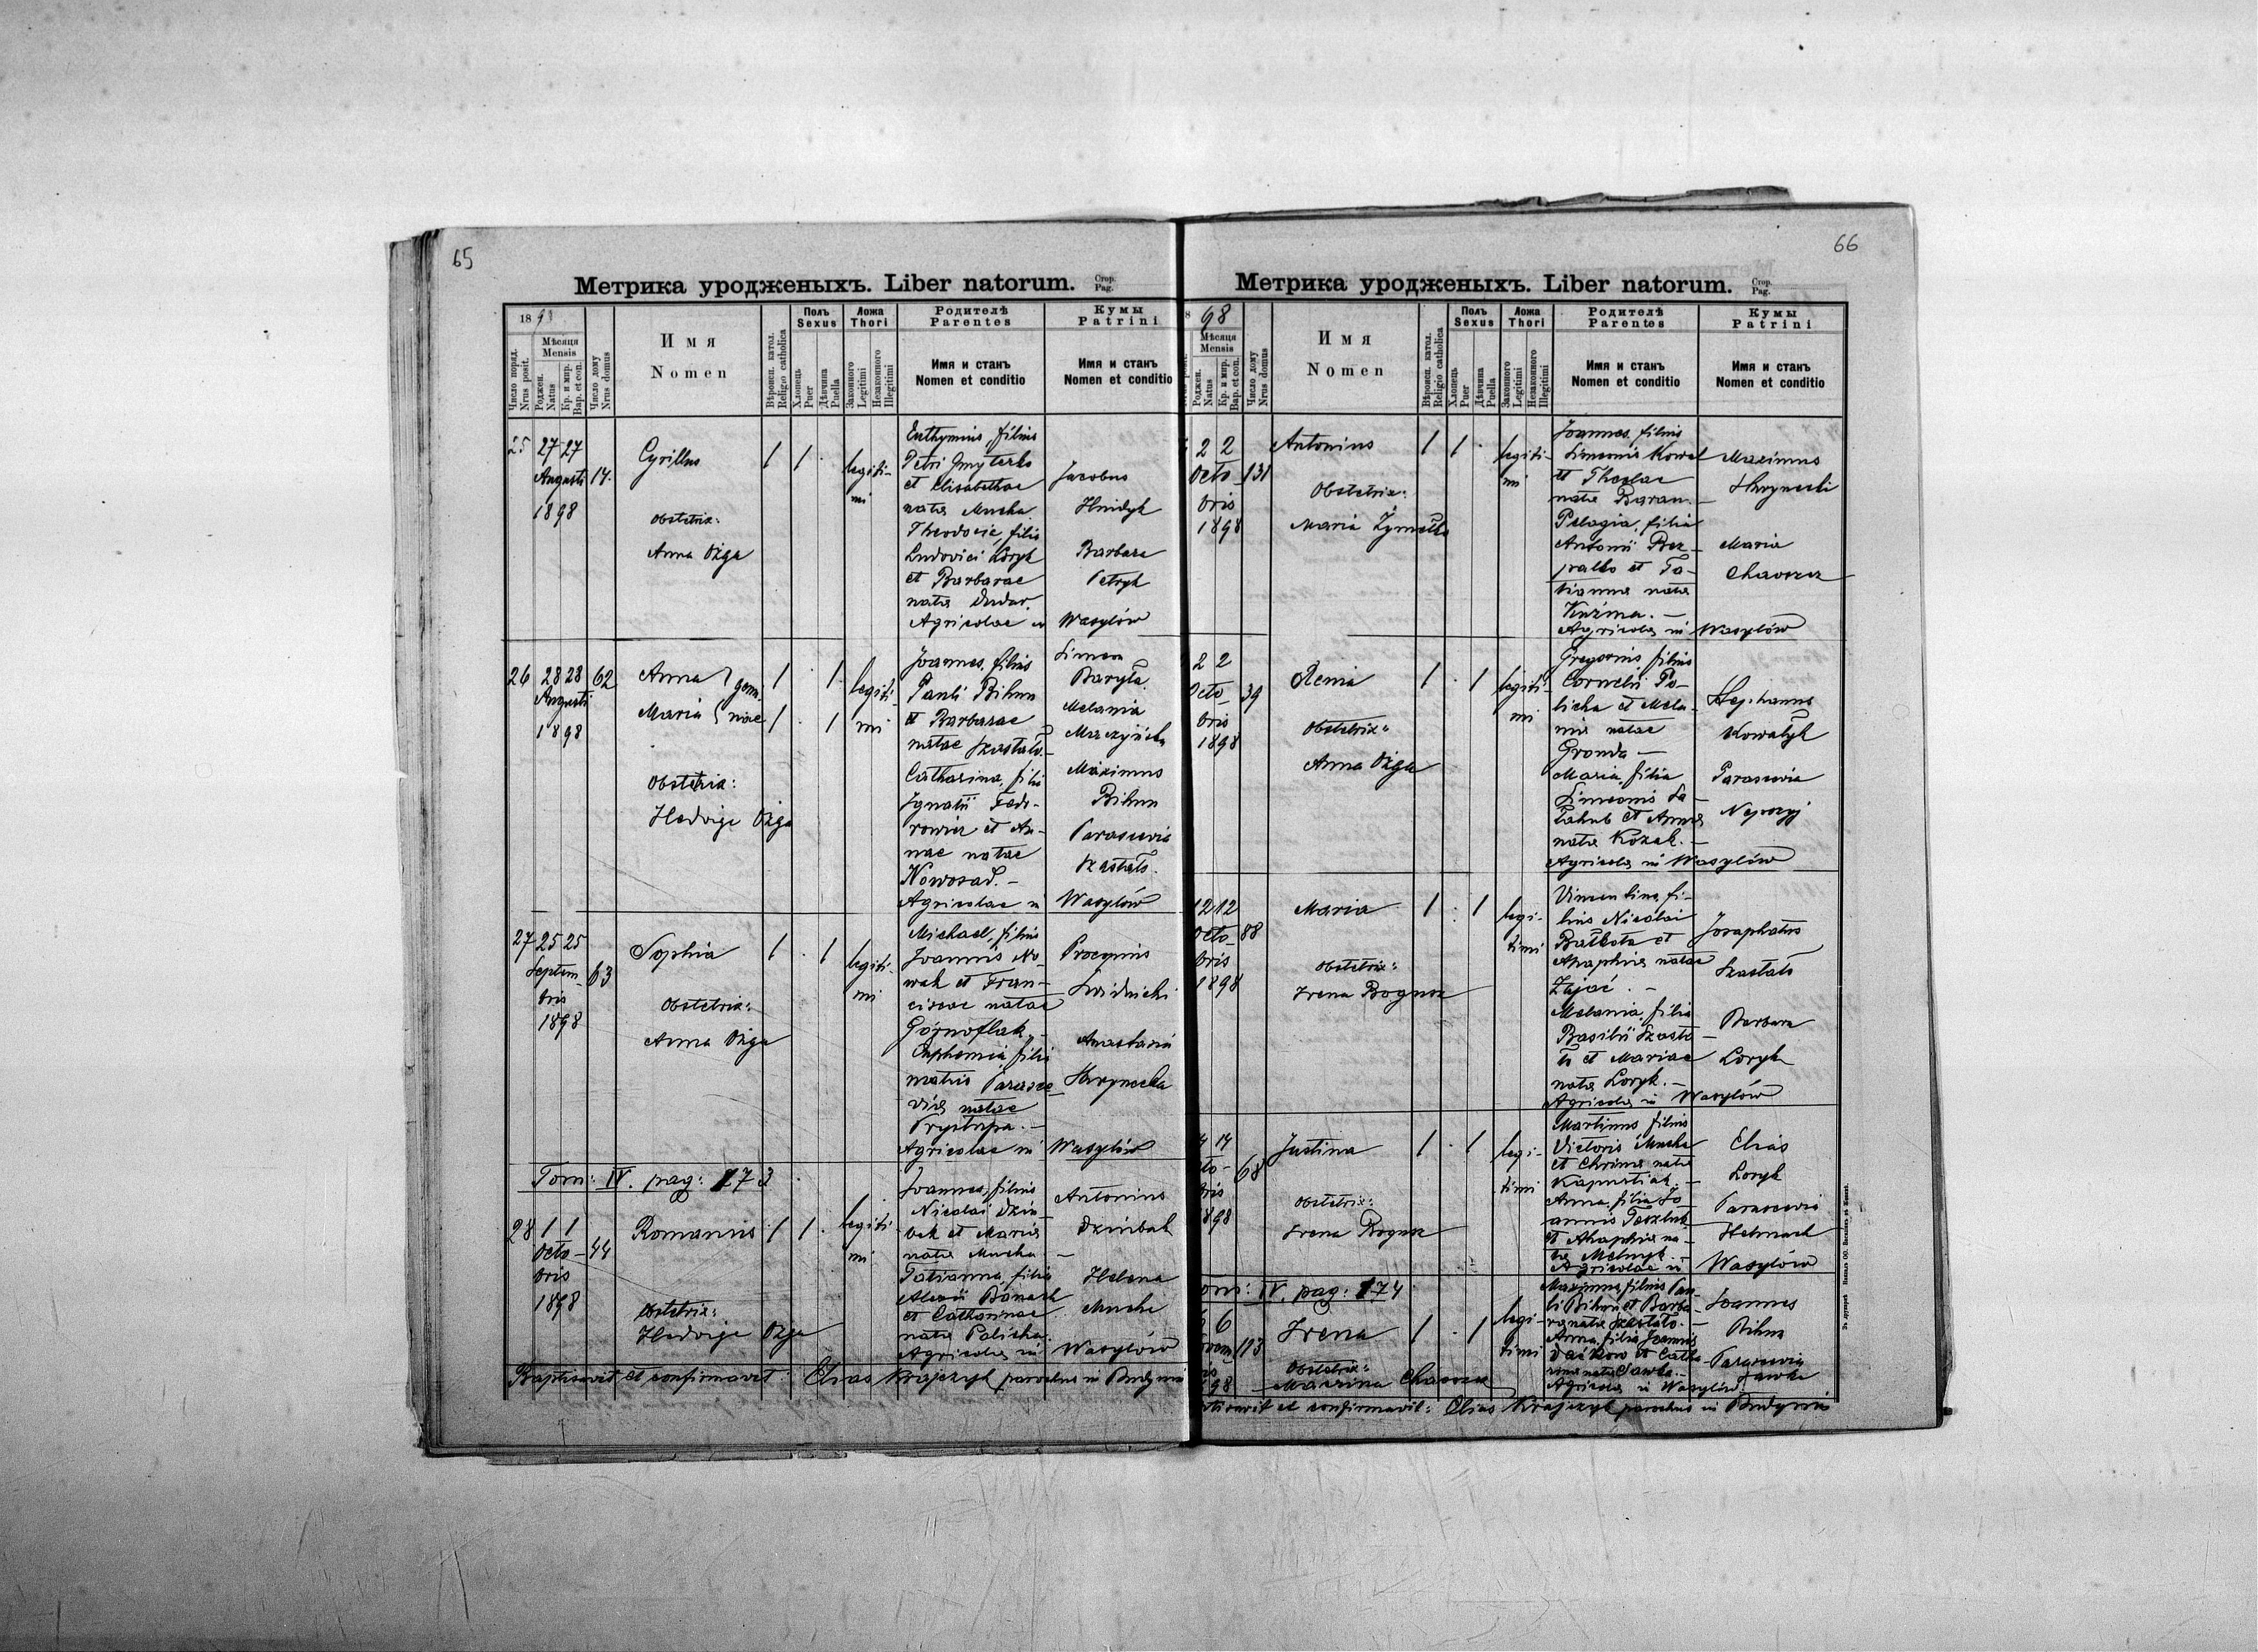 65
Метрика уродженыхъ. Liber natorum. Стор. Pag.
1898
Число поряд.
Nrus posit.
Мѣсяця
Mensis
Роджен.
Natus
Кр. и мир.
Bap. et con.
Число дому
Nrus domus
Имя
Nomen
Вѣроисп. катол.
Religio catholica
Полъ
Sexus
Хлопець
Puer
Дѣвчина
Puella
Ложа
Thori
Законного
Legitimi
Незаконного
Illegitimi
Родителѣ
Parentes
Имя и станъ
Nomen et conditio
Кумы
Patrini
Имя и станъ
Nomen et conditio
25 27 27
Augusti 14.
1898
Cyrillus
1 1 .
legiti-
mi
Obstetrix:
Anna Ożga
Euthymius, filius
Petri
et Elisabethae
natae Mucha
Theodosia, filia
Ludovici Loryk
et Barbarae
natae Dudar.
Agricolae in
Jacobus
Hnidyk
Barbara
Petryk
Wasylów
26 28 28 62
Augusti
1898
Anna } gemi-
Maria } nae
1 . 1
1 . 1
legiti-
mi
Obstetrix:
Hedvige Ożga
Joannes, filius
Pauli Bihun
et Barbarae
natae Szastało
Catharina, filia
Ignatii Fedo-
rowicz et An-
nae natae
Nowosad. —
Agricolae in
Simeon
Baryła
Melania
Maczyńska
Maximus
Bihun
Parascevia
Szastało.
Wasylów
27 25 25
Septem- 63
bris
1898
Sophia
1 . 1
legiti-
mi
Obstetrix:
Anna Ożga
Michael, filius
Joannis No-
wak et Fran-
ciscae natae
Górnoflak. —
Euphemia, filia
matris Parasce-
viae natae
Prystupa. —
Agricolae in
Procopius
Swidnicki
Anastasia
Hrynecka
Wasylów
Tom: IV. pag: 173
28 1 1
Octo- 44
bris
1898
Romanus
1 1 .
legiti-
mi
Obstetrix:
Hedvige Ożga
Joannes, filius
Nicolai Dziu-
bak et Mariae
natae Mucha —
Tatianna, filia
Alexii Banach
et Catharinae
natae Palicha.
Agricolae in
Antonius
Dziubak
Helena
Mucha
Wasylów
Baptisavit et confirmavit: Elias Krajczyk parochus in Budynin
66
Метрика уродженыхъ. Liber natorum. Стор. Pag.
98
Мѣсяця
Mensis
Роджен.
Natus
Кр. и мир.
Bap. et con.
Число дому
Nrus domus
Имя
Nomen
Вѣроисп. катол.
Religio catholica
Полъ
Sexus
Хлопець
Puer
Дѣвчина
Puella
Ложа
Thori
Законного
Legitimi
Незаконного
Illegitimi
Родителѣ
Parentes
Имя и станъ
Nomen et conditio
Кумы
Patrini
Имя и станъ
Nomen et conditio
2 2
Octo- 131
bris
1898
Antonius
1 1 .
legiti-
mi
Obstetrix:
Maria
Joannes, filius
Simeonis Kowal
et Theclae
natae Baran. —
Pelagia, filia
Antonii Bez-
palko et Ta-
tiannae natae
Kuźma. —
Agricolae in
Maximus
Hrynecki
Maria
Chaveza
Wasylów
2 2
Octo- 39
bris
1898
Xenia
1 . 1
legiti-
mi
Obstetrix:
Anna Ożga
Gregorius, filius
Cornelii Pa-
licha et Mela-
niae natae
Gronda —
Maria, filia
Simeonis Sa-
łahub et Annae
natae Kozak. —
Agricolae in Wasylów
Stephanus
Kowalyk
Parascevia
12 12
Octo- 88
bris
1898
Maria
1 . 1
legi-
timi
Obstetrix:
Irena Bogusz
Vincentius, fi-
lius Nicolai
Bałkota et
Ahaphiae natae
Zając. —
Melania, filia
Basilii Szasta-
ło et Mariae
natae Loryk. —
Agricolae in
Josaphatus
Szastało
Barbara
Loryk
Wasylów
14 14
cto- 68
bris
898
Justina
1 . 1
legi-
timi
Obstetrix:
Irena Bogusz
Martinus filius
Victoris Mucha
et Ehrinae natae
Kapustiak. —
Anna, filia Jo-
annis
et Ahaphiae na-
tae Melnyk. —
Agricolae in
Elias
Loryk
Parascevia
Helmach
Wasylów
om: IV. pag: 174
6 6
ovem 113
is
98
Irena
1 . 1
legi-
timi
Obstetrix:
Macrina Chavoza
Maximus, filius Pau-
li Bihun et Barba-
rae natae Szastało. —
Anna, filia Joannis
Daćkow et Catha-
rinae natae Sawka. —
Agricolae in Wasylów.
Joannes
Bihun
Parascevia
Sawka
tisavit et confirmavit: Elias Krajczyk parochus in Budynin